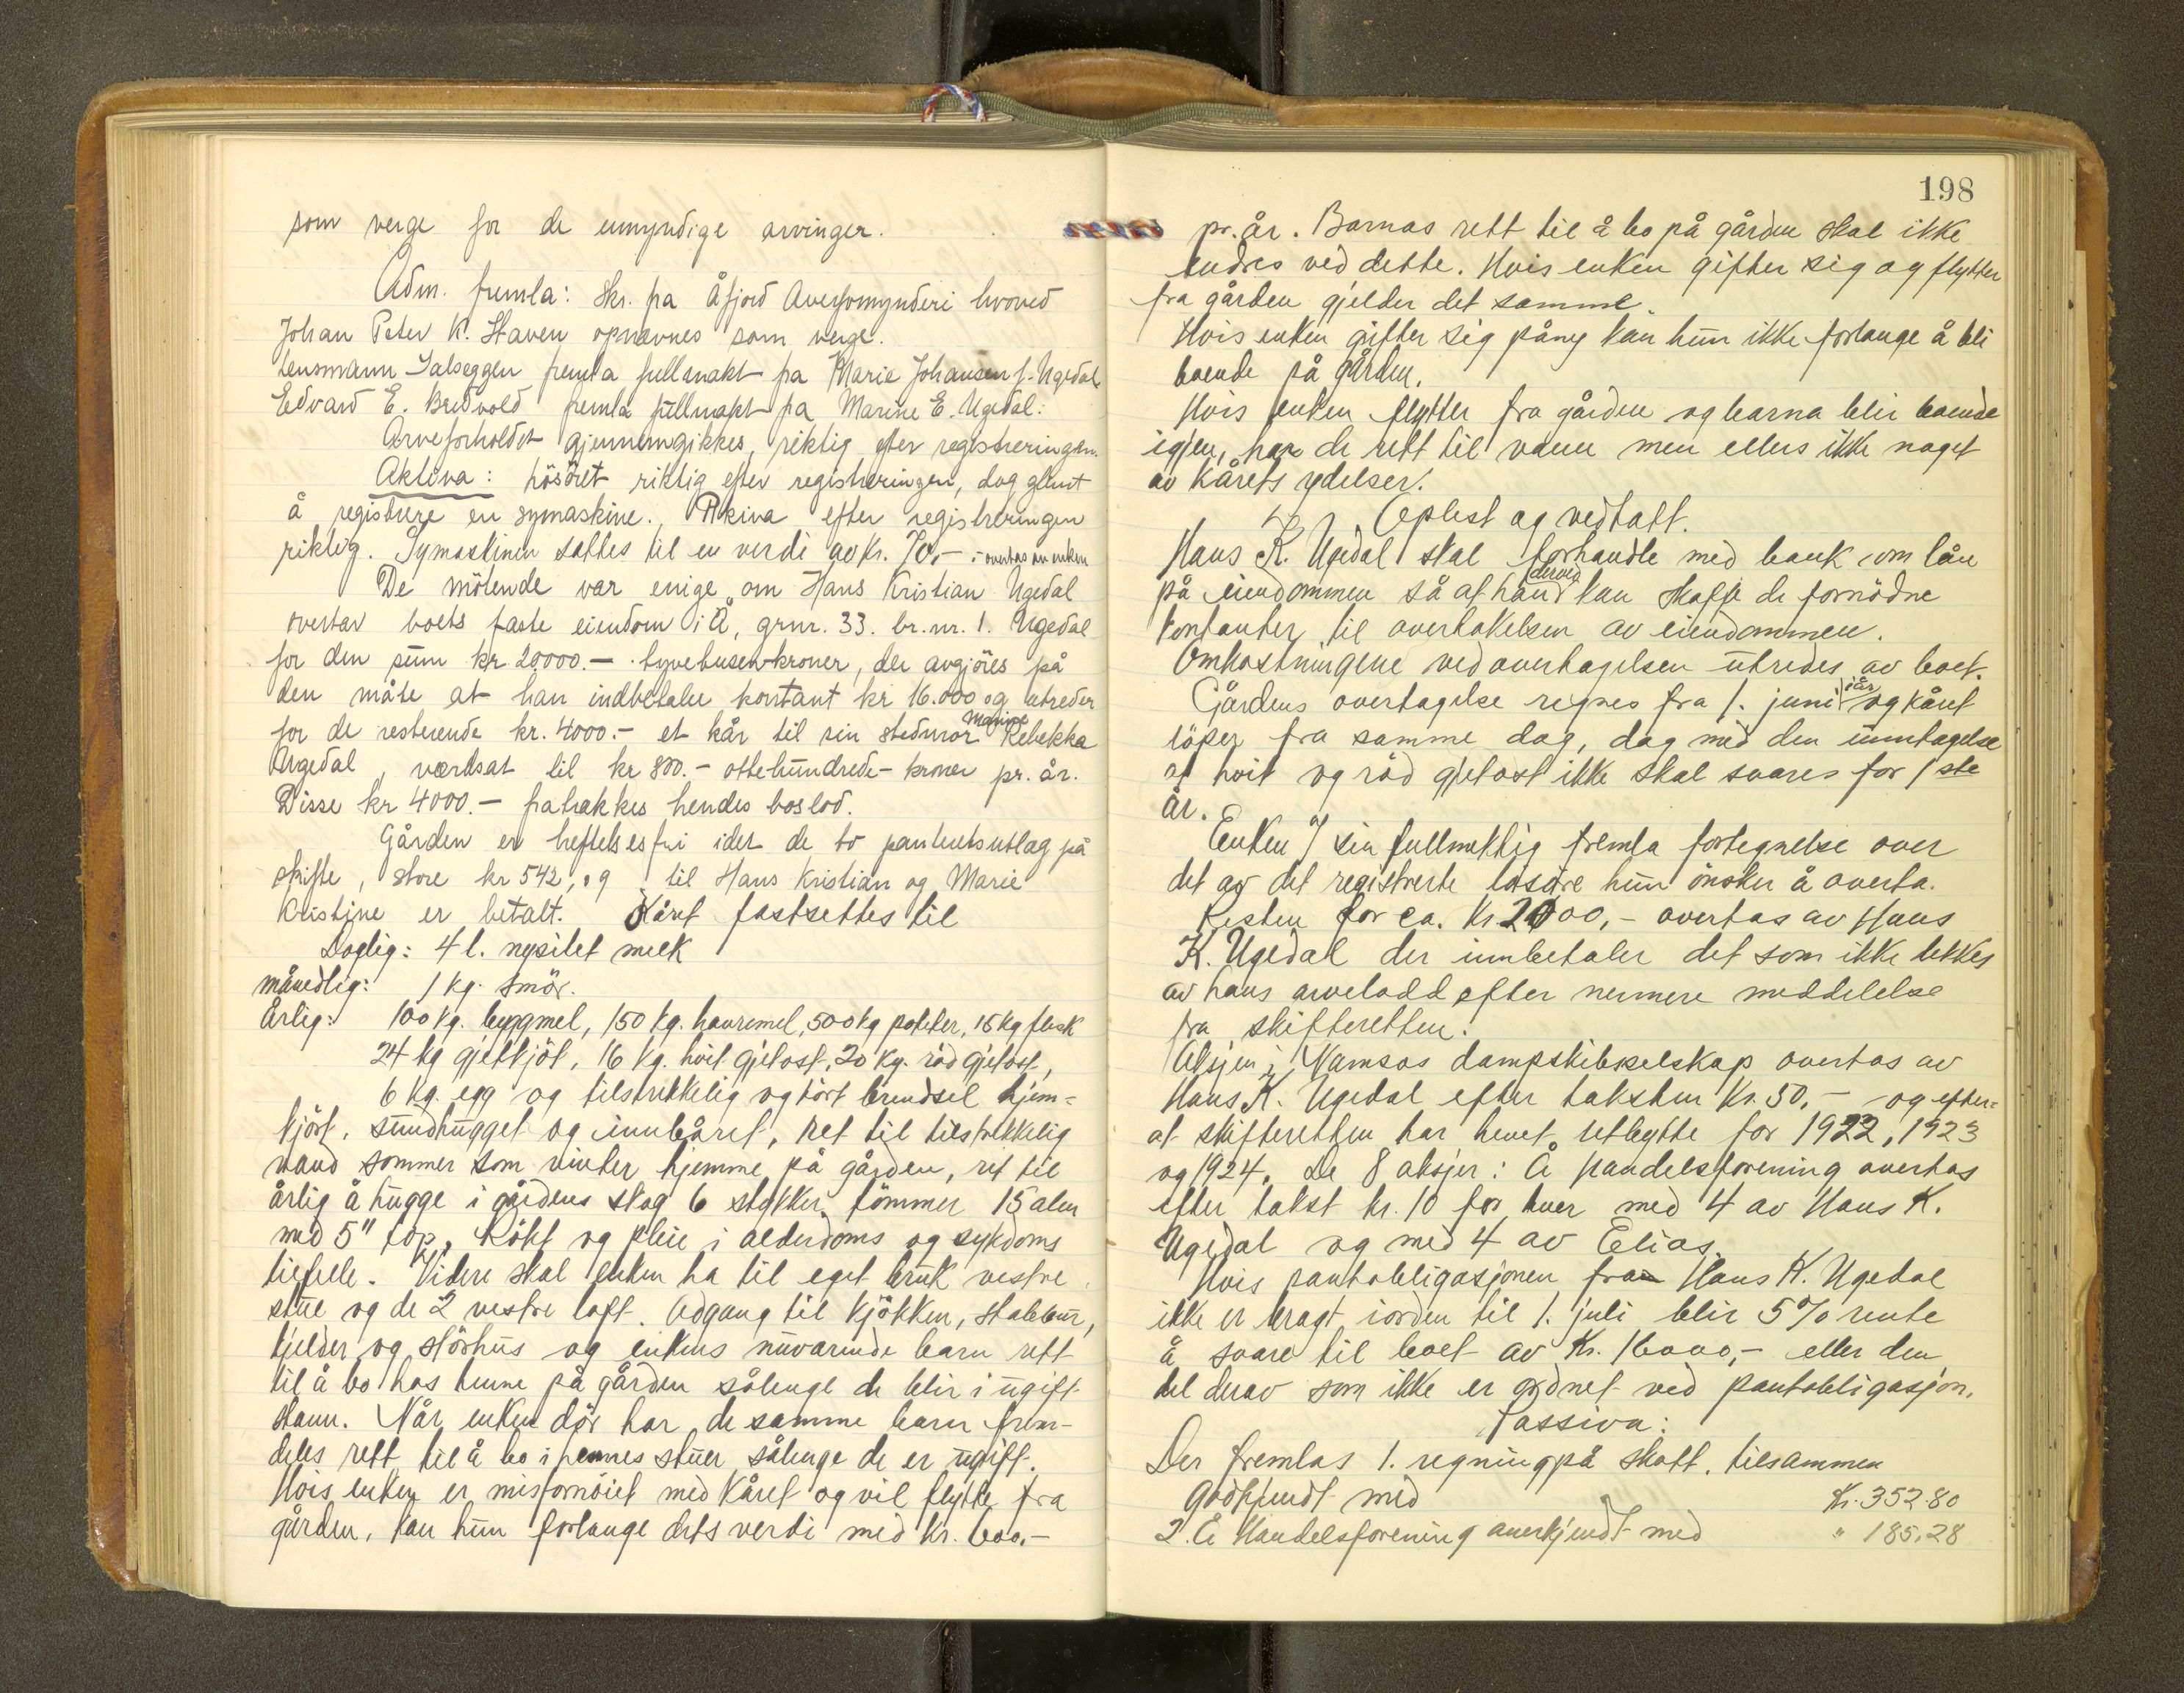 som verge for de umyndige arvinger.
Adm. fremla: Skr. fra Åfjord Overformynderi hvoved
Johan Peter K. Staven opnævnes som verge.
Lensmann Salseggen fremla fullmakt fra Marie Johansen f. Ugedal
Edvard E. Bredvold fremla fullmakt fra Marine E. Ugedal.
Arveforholdet gjennemgikkes, riktig efter registreringen.
Aktiva: løsöret riktig efter registreringen, dog glemt
å registrere en symaskine. Aktiva efter registreringen
riktig. Symaskinen sattes til en verdi av kr. 70,- - overtas av enken
De mötende var enige om Hans Kristian Ugedal
overtar boets faste eiendom i Å, grnr. 33. br.nr. 1. Ugedal
for den sum kr 20000.- tyvetusenkroner, der avgjöres på
den måte at han indbetaler kontant kr 16.000 og utreder
for de resterende kr. 4000.- et kår til sin stedmor Marine Rebekka
Ugedal, værdsat til kr 800.- ottehundrede- kroner pr. år.
Disse kr 4000.- fratrækkes hendes boslod.
Gården er heftelsesfri idet de to panteutlag på
skifte, store kr 542, og til Hans Kristian og Marie
Kristine er betalt. Kåret fastsettes til
Daglig: 4 l. nysilet melk
månedlig: 1 kg. smör.
Årlig: 100 kg. byggmel, 150 kg. havremel, 500 kg poteter, 15 kg flesk
24 kg gjetkjöt, 16 kg. hvit gjetost, 20 kg. röd gjetost,
6 kg. egg og tilstrekkelig og tört brendsel hjem=
kjört, sundhugget og innbåret, ret til tilstrekkelig
vand sommer som vinter hjemme på gården, ret til
årlig å hugge i gårdens skog 6 stykker tömmer 15 alen
med 5" top. Rökt og pleie i alderdoms og sykdoms
tilfelle. Videre skal enken ha til eget bruk vestre
stue og de 2 vestre loft. Adgang til kjökken, stabbur,
kjelder og störhus og enkens nuværende barn rett
til å bo hos henne på gården sålenge de blir i ugift
stann. Når enken dör har de samme barn frem-
deles rett til å bo i hennes stuer sålenge de er ugift.
Hvis enken er misfornöiet med kåret og vil flytte fra
gården, kan hun forlange dets verdi med kr. 600.-
198
pr. år. Barnas rett til å bo på gården skal ikke
endres ved dette. Hvis enken gifter sig og flytter
fra gården gjelder det samme.
Hvis enken gifter sig påny kan hun ikke forlange å bli
boende på gården.
Hvis enken flytter fra gården og barna blir boende
igjen, har de rett til vann men ellers ikke noget
av kårets ydelser.
Oplest og vedtatt.
Hans K. Ugedal skal forhandle med bank om lån
på eiendommen så at han derved kan skaffe de fornödne
kontanter til overtakelsen av eiendommen.
Omkostningene ved overtagelsen utredes av boet.
Gårdens overtagelse regnes fra 1. juni iår og kåret
löper fra samme dag, dog med den unntagelse
at hvit og röd gjetost ikke skal svares for 1ste
år.
Enken v/ sin fullmektig fremla fortegnelse over
det av det registrerte lösöre hun önsker å overta.
Resten for ca. kr 2000,- overtas av Hans
K. Ugedal der innbetaler det som ikke dekkes
av hans arvelodd efter nermere meddelelse
fra skifteretten.
Aksjen i Namsos dampskibsselskap overtas av
Hans K. Ugedal efter taksten kr. 50,- og efter=
at skifteretten har hevet utbytte for 1922, 1923
og 1924. De 8 aksjer i Å Handelsforening overtas
efter takst kr. 10 for hver med 4 av Hans K.
Ugedal og med 4 av Elias.
Hvis pantobligasjonen fra Hans K. Ugedal
ikke er bragt iorden til 1. juli blir 5% rente
å svare til boet av kr. 16000,- eller den
del derav som ikke er ordnet ved pantobligasjon.
Passiva:
Der fremlas 1. regning på skatt, tilsammen
godkjendt med Kr. 352.80
2. Å Handelsforening anerkjendt med " 185.28